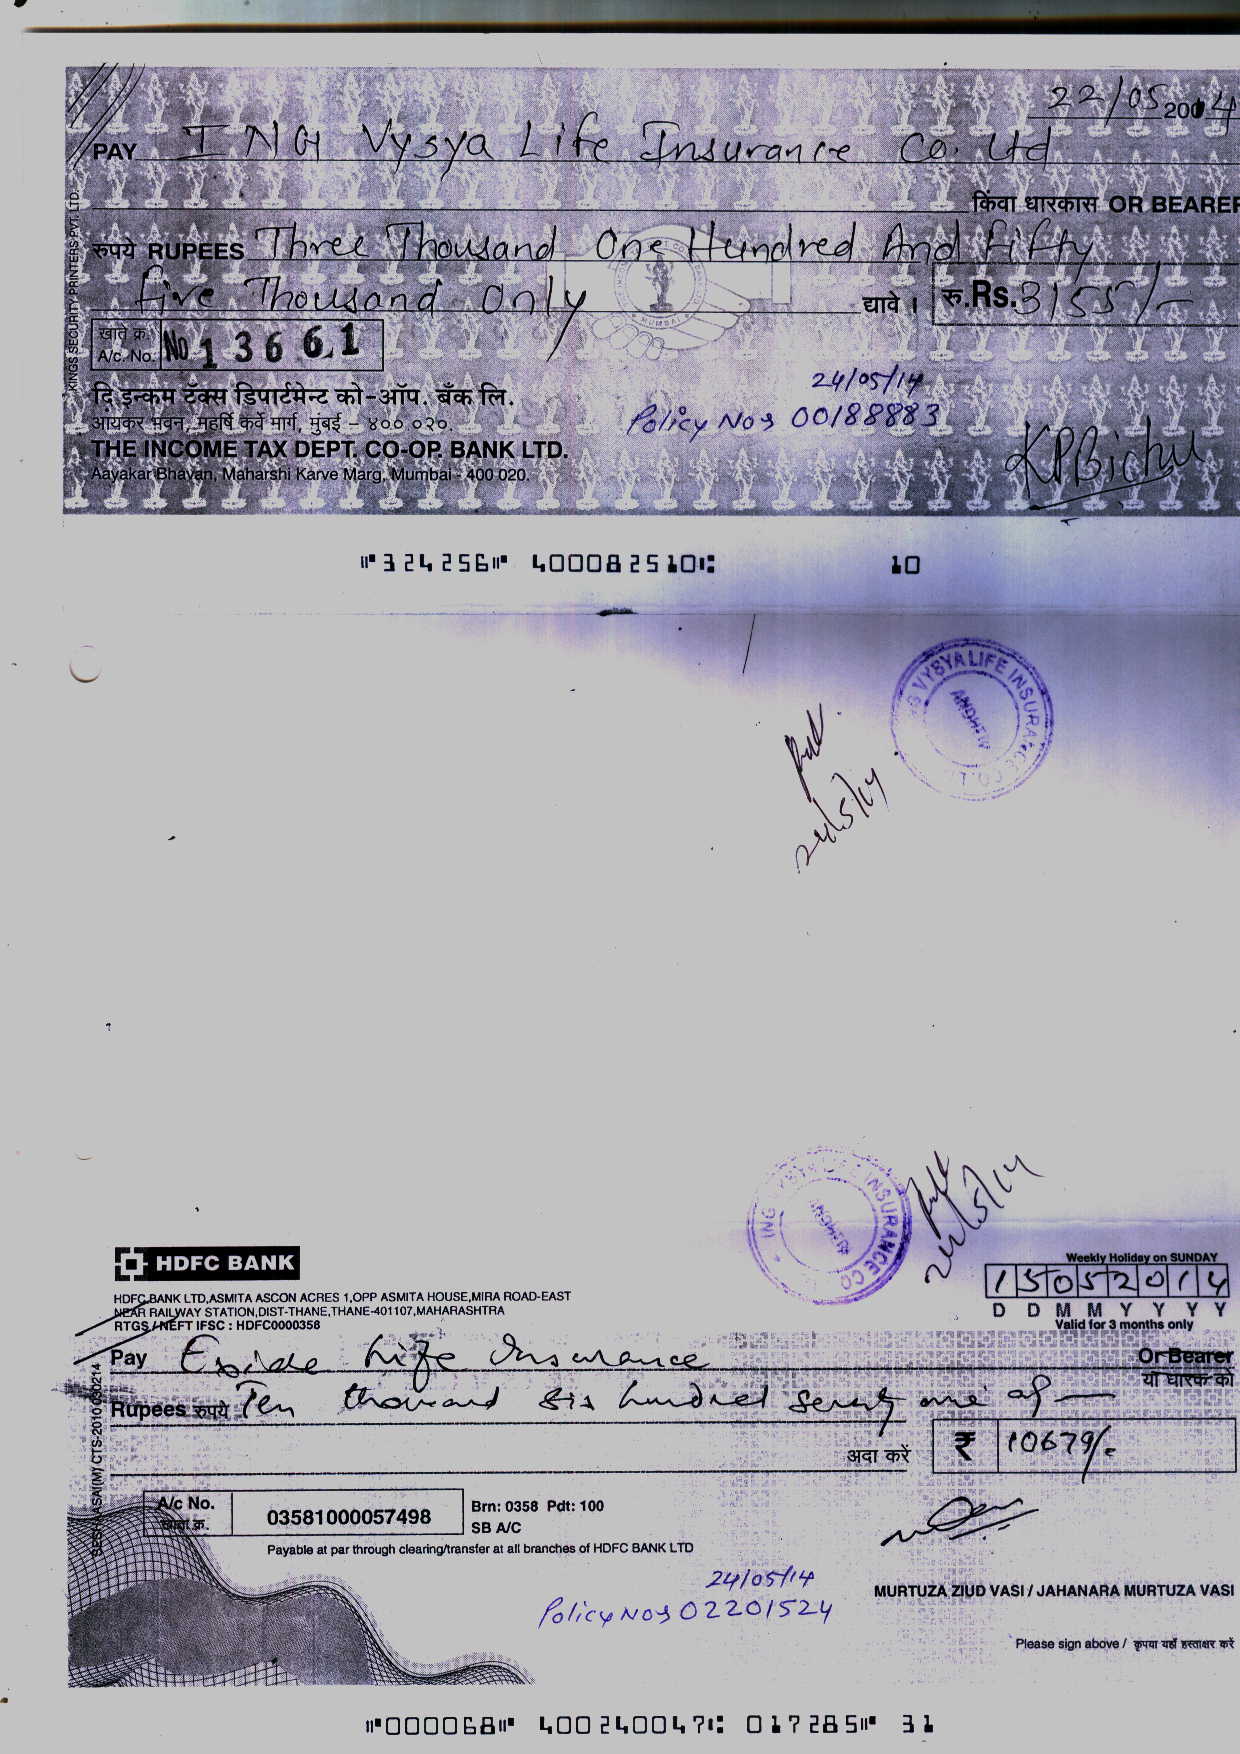 22/05 2004
PAY ING Vysya Life Insurance Co. Ltd
किंवा धारकास OR BEARER
रुपये RUPEES Three Thousand One Hundred And Fifty
five Thousand Only द्यावे । रु.Rs. 3155/-
खाते क्र.
A/c. No. No 13661
KINGS SECURITY PRINTERS PVT. LTD.
दि इन्कम टॅक्स डिपार्टमेन्ट को-ऑप. बँक लि.
आयकर भवन, महर्षि कर्वे मार्ग, मुंबई - ४०० ०२०.
THE INCOME TAX DEPT. CO-OP. BANK LTD.
Aayakar Bhavan, Maharshi Karve Marg, Mumbai - 400 020.
24/05/14
Policy No: 00188883
KPBichu
⑈324256⑈ 400082510⑆ 10
ING VYSYA LIFE INSURANCE CO. LTD
24/5/14
ING VYSYA LIFE INSURANCE CO
24/5/14
HDFC BANK
HDFC BANK LTD,ASMITA ASCON ACRES 1,OPP ASMITA HOUSE,MIRA ROAD-EAST
NEAR RAILWAY STATION,DIST-THANE,THANE-401107,MAHARASHTRA
RTGS / NEFT IFSC : HDFC0000358
Weekly Holiday on SUNDAY
15052014
D D M M Y Y Y Y
Valid for 3 months only
Pay Exide Life Insurance Or Bearer
या धारक को
Rupees रुपये Ten thousand six hundred
अदा करें ₹ 10679/-
A/c No.
खाता क्र.
03581000057498
Brn: 0358 Pdt: 100
SB A/C
Payable at par through clearing/transfer at all branches of HDFC BANK LTD
24/05/14
Policy No: 02201524
MURTUZA ZIUD VASI / JAHANARA MURTUZA VASI
Please sign above / कृपया यहाँ हस्ताक्षर करें
⑈000068⑈ 400240047⑆ 017285⑈ 31